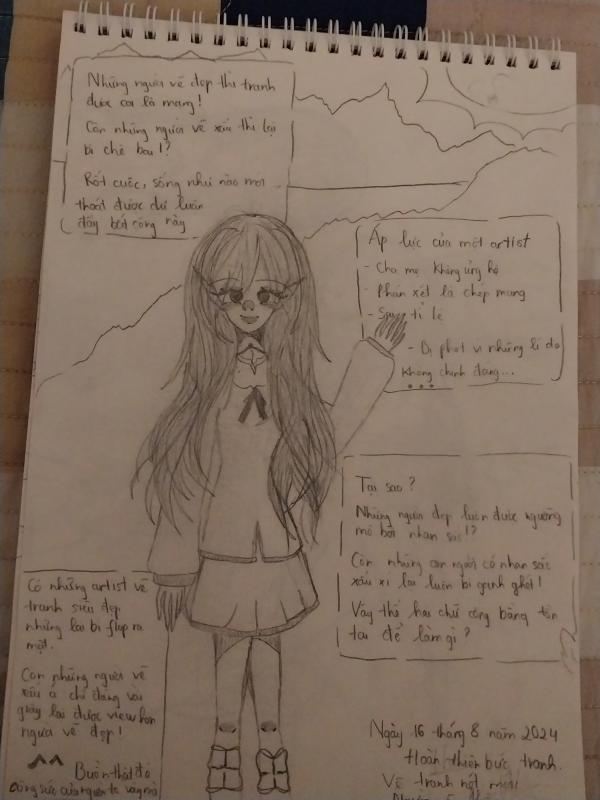 Những người vẽ đẹp thì tranh
được coi là mạng!
Còn những người vẽ xấu thì lại
bị chê bai!?
Rốt cuộc, sống như nào mới
thoát được dư luận
đầy bất công này
Áp lực của một artist
- Cha mẹ không ủng hộ
- Phán xét là chép mạng
- tỉ lệ
- Bị phốt vì những lí do
không chính đáng...
Tại sao?
Những người đẹp luôn được ngưỡng
mộ bởi nhan sắc!?
Còn những con người có nhan sắc
xấu xí lại luôn bị ganh ghét!
Vậy thế hai chữ công bằng tồn
tại để làm gì?
Có những artist vẽ
tranh siêu đẹp
nhưng lại bị flop ra
mặt.
Còn những người vẽ
xấu á chỉ đăng vài
giây lại được view hơn
người vẽ đẹp!
^^ Buồn thật đó
công sức của người ta vậy mà
Ngày 16 tháng 8 năm 2024
Hoàn thiện bức tranh.
Vẽ tranh